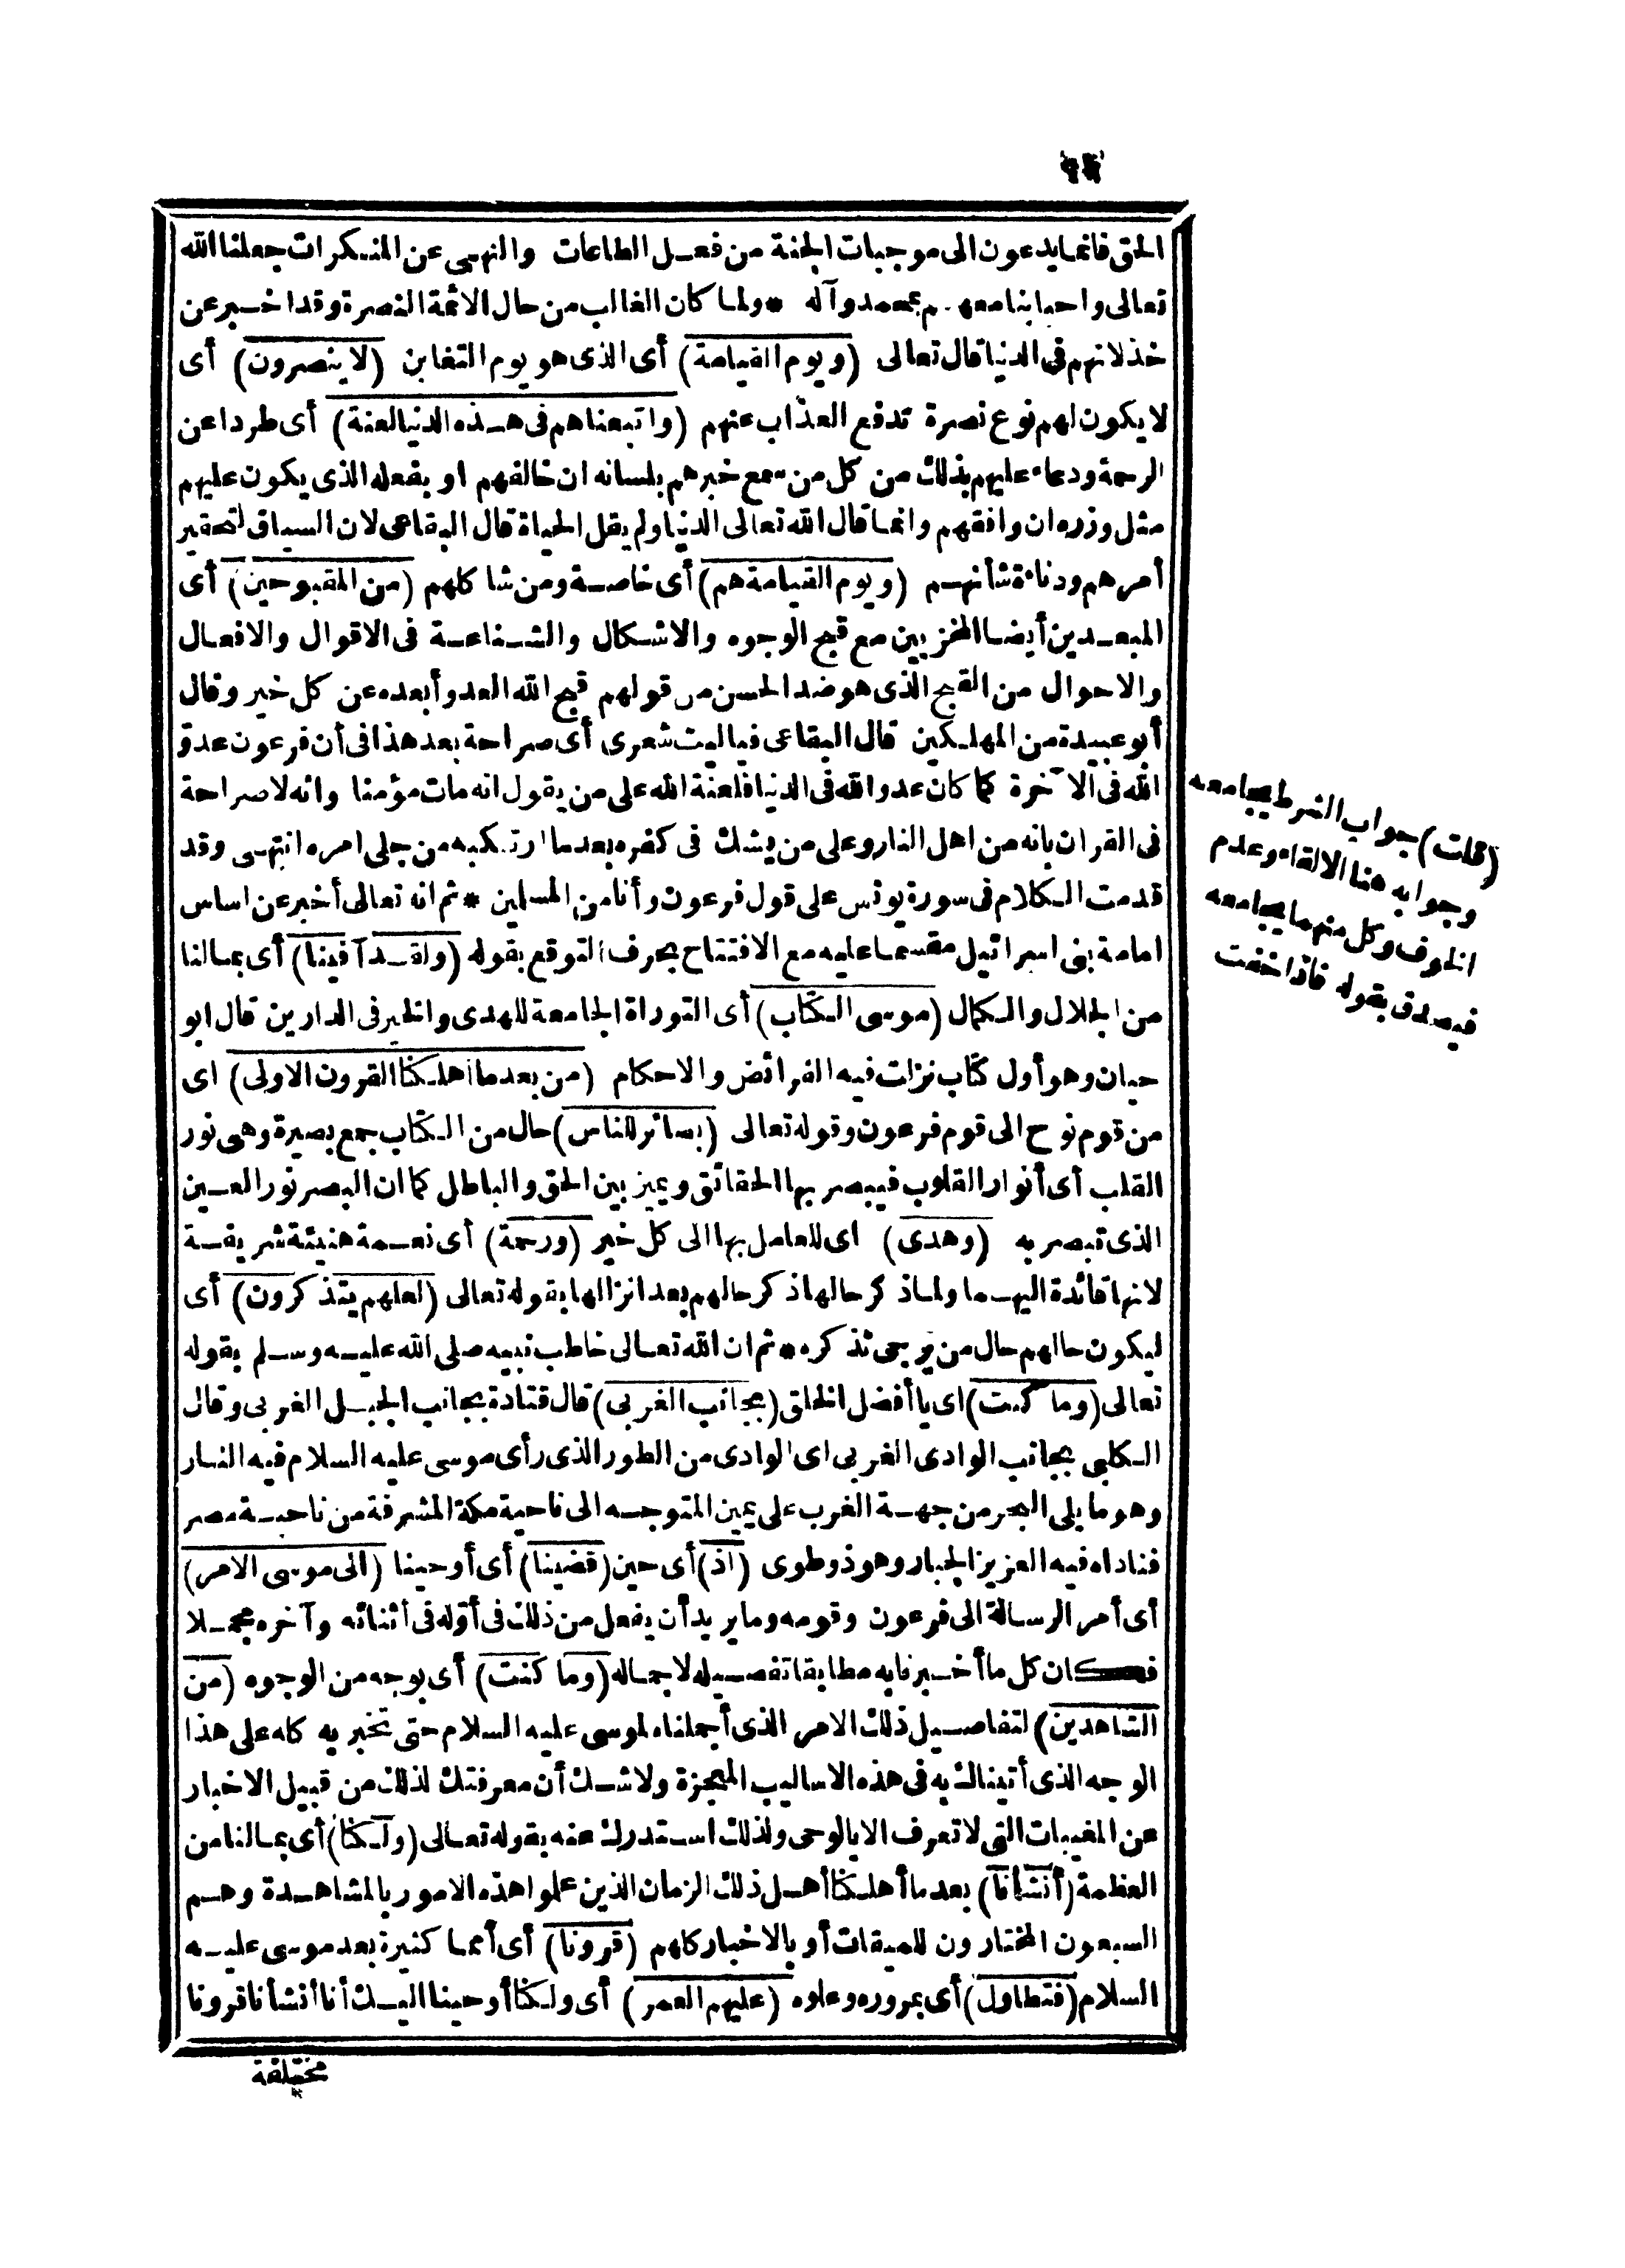 الحق فانما يدعون الى موجبات الجنة من فعل الطاعات والنهى عن المنكرات جعلنا الله
تعالى واحبابنا معهم بمحمد وآله * ولما كان الغالب من حال الائمة النصرة وقد اخبر عن
خذلانهم فى الدنيا قال تعالى (ويوم القيامة) أى الذى هو يوم التغابن (لا ينصرون) أى
لا يكون لهم نوع نصرة تدفع العذاب عنهم (واتبعناهم فى هذه الدنيا لعنة) أى طردا عن
الرحمة ودعاء عليهم بذلك من كل من سمع خبرهم بلسانه ان خالفهم او بفعله الذى يكون عليهم
مثل وزره ان وافقهم وانما قال الله تعالى الدنيا ولم يقل الحياة قال البقاعى لان السياق لتحقير
أمرهم ودناءة شأنهم (ويوم القيامة هم) أى خاصة ومن شاكلهم (من المقبوحين) أى
المبعدين أيضا المخزيين مع قبح الوجوه والاشكال والشناعة فى الاقوال والافعال
والاحوال من القبح الذى هو ضد الحسن من قولهم قبح الله العدو أبعده عن كل خير وقال
أبو عبيدة من المهلكين قال البقاعى فياليت شعرى أى صراحة بعد هذا فى أن فرعون عدوّ
الله فى الآخرة كما كان عدو الله فى الدنيا فلعنة الله على من يقول انه مات مؤمنا وانه لا صراحة
فى القران بانه من اهل النار وعلى من يشك فى كفره بعد ما ارتكبه من جلى امره انتهى وقد
قدمت الكلام فى سورة يونس على قول فرعون وأنا من المسلمين * ثم انه تعالى أخبر عن اساس
امامة بنى اسرائيل مقسما عليه مع الافتتاح بحرف التوقع بقوله (ولقد آتينا) أى بمالنا
من الجلال والكمال (موسى الكتاب) أى التوراة الجامعة للهدى والخير فى الدارين قال ابو
حيان وهو أول كتاب نزلت فيه الفرائض والاحكام (من بعد ما اهلكنا القرون الاولى) اى
من قوم نوح الى قوم فرعون وقوله تعالى (بصائر للناس) حال من الكتاب جمع بصيرة وهى نور
القلب أى أنوار القلوب فيبصر بها الحقائق ويميز بين الحق والباطل كما ان البصر نور العين
الذى تبصر به (وهدى) اى للعامل بها الى كل خير (ورحمة) أى نعمة هنيئة شريفة
لانها قائدة اليهما ولما ذكر حالها ذكر حالهم بعد انزالها بقوله تعالى (لعلهم يتذكرون) أى
ليكون حالهم حال من يرجى تذكره * ثم ان الله تعالى خاطب نبيه صلى الله عليه وسلم بقوله
تعالى (وما كنت) اى يا أفضل الخلق (بجانب الغربى) قال قتادة بجانب الجبل الغربى وقال
الكلبى بجانب الوادى الغربى اى الوادى من الطور الذى رأى موسى عليه السلام فيه النار
وهو ما يلى البحر من جهة الغرب على يمين المتوجه الى ناحية مكة المشرفة من ناحية مصر
فناداه فيه العزيز الجبار وهو ذو طوى (اذ) أى حين (قضينا) أى أوحينا (الى موسى الامر)
أى أمر الرسالة الى فرعون وقومه وما يريد أن يفعل من ذلك فى أوّله فى أثنائه وآخره مجملا
فكان كل ما أخبرنا به مطابقا تفصيله لاجماله (وما كنت) أى بوجه من الوجوه (من
الشاهدين) لتفاصيل ذلك الامر الذى أجملناه لموسى عليه السلام حتى تخبر به كله على هذا
الوجه الذى أتيناك به فى هذه الاساليب المعجزة ولا شك أن معرفتك لذلك من قبيل الاخبار
عن المغيبات التى لا تعرف الا بالوحى ولذلك استدرك عنه بقوله تعالى (ولكنا) أى بمالنا من
العظمة (أنشأنا) بعد ما أهلكنا أهل ذلك الزمان الذين علموا هذه الامور بالمشاهدة وهم
السبعون المختارون للميقات أو بالاخبار كلهم (قرونا) أى أمما كثيرة بعد موسى عليه
السلام (فتطاول) أى بمروره وعلوه (عليهم العمر) أى ولكنا أوحينا اليك أنا أنشأنا قرونا
مختلفة
(قلت) جواب الشرط يجامعه
وجوابه هنا الالقاء وعدم
الخوف وكل منهما يجامعه
فيصدق بقوله فاذا خفت